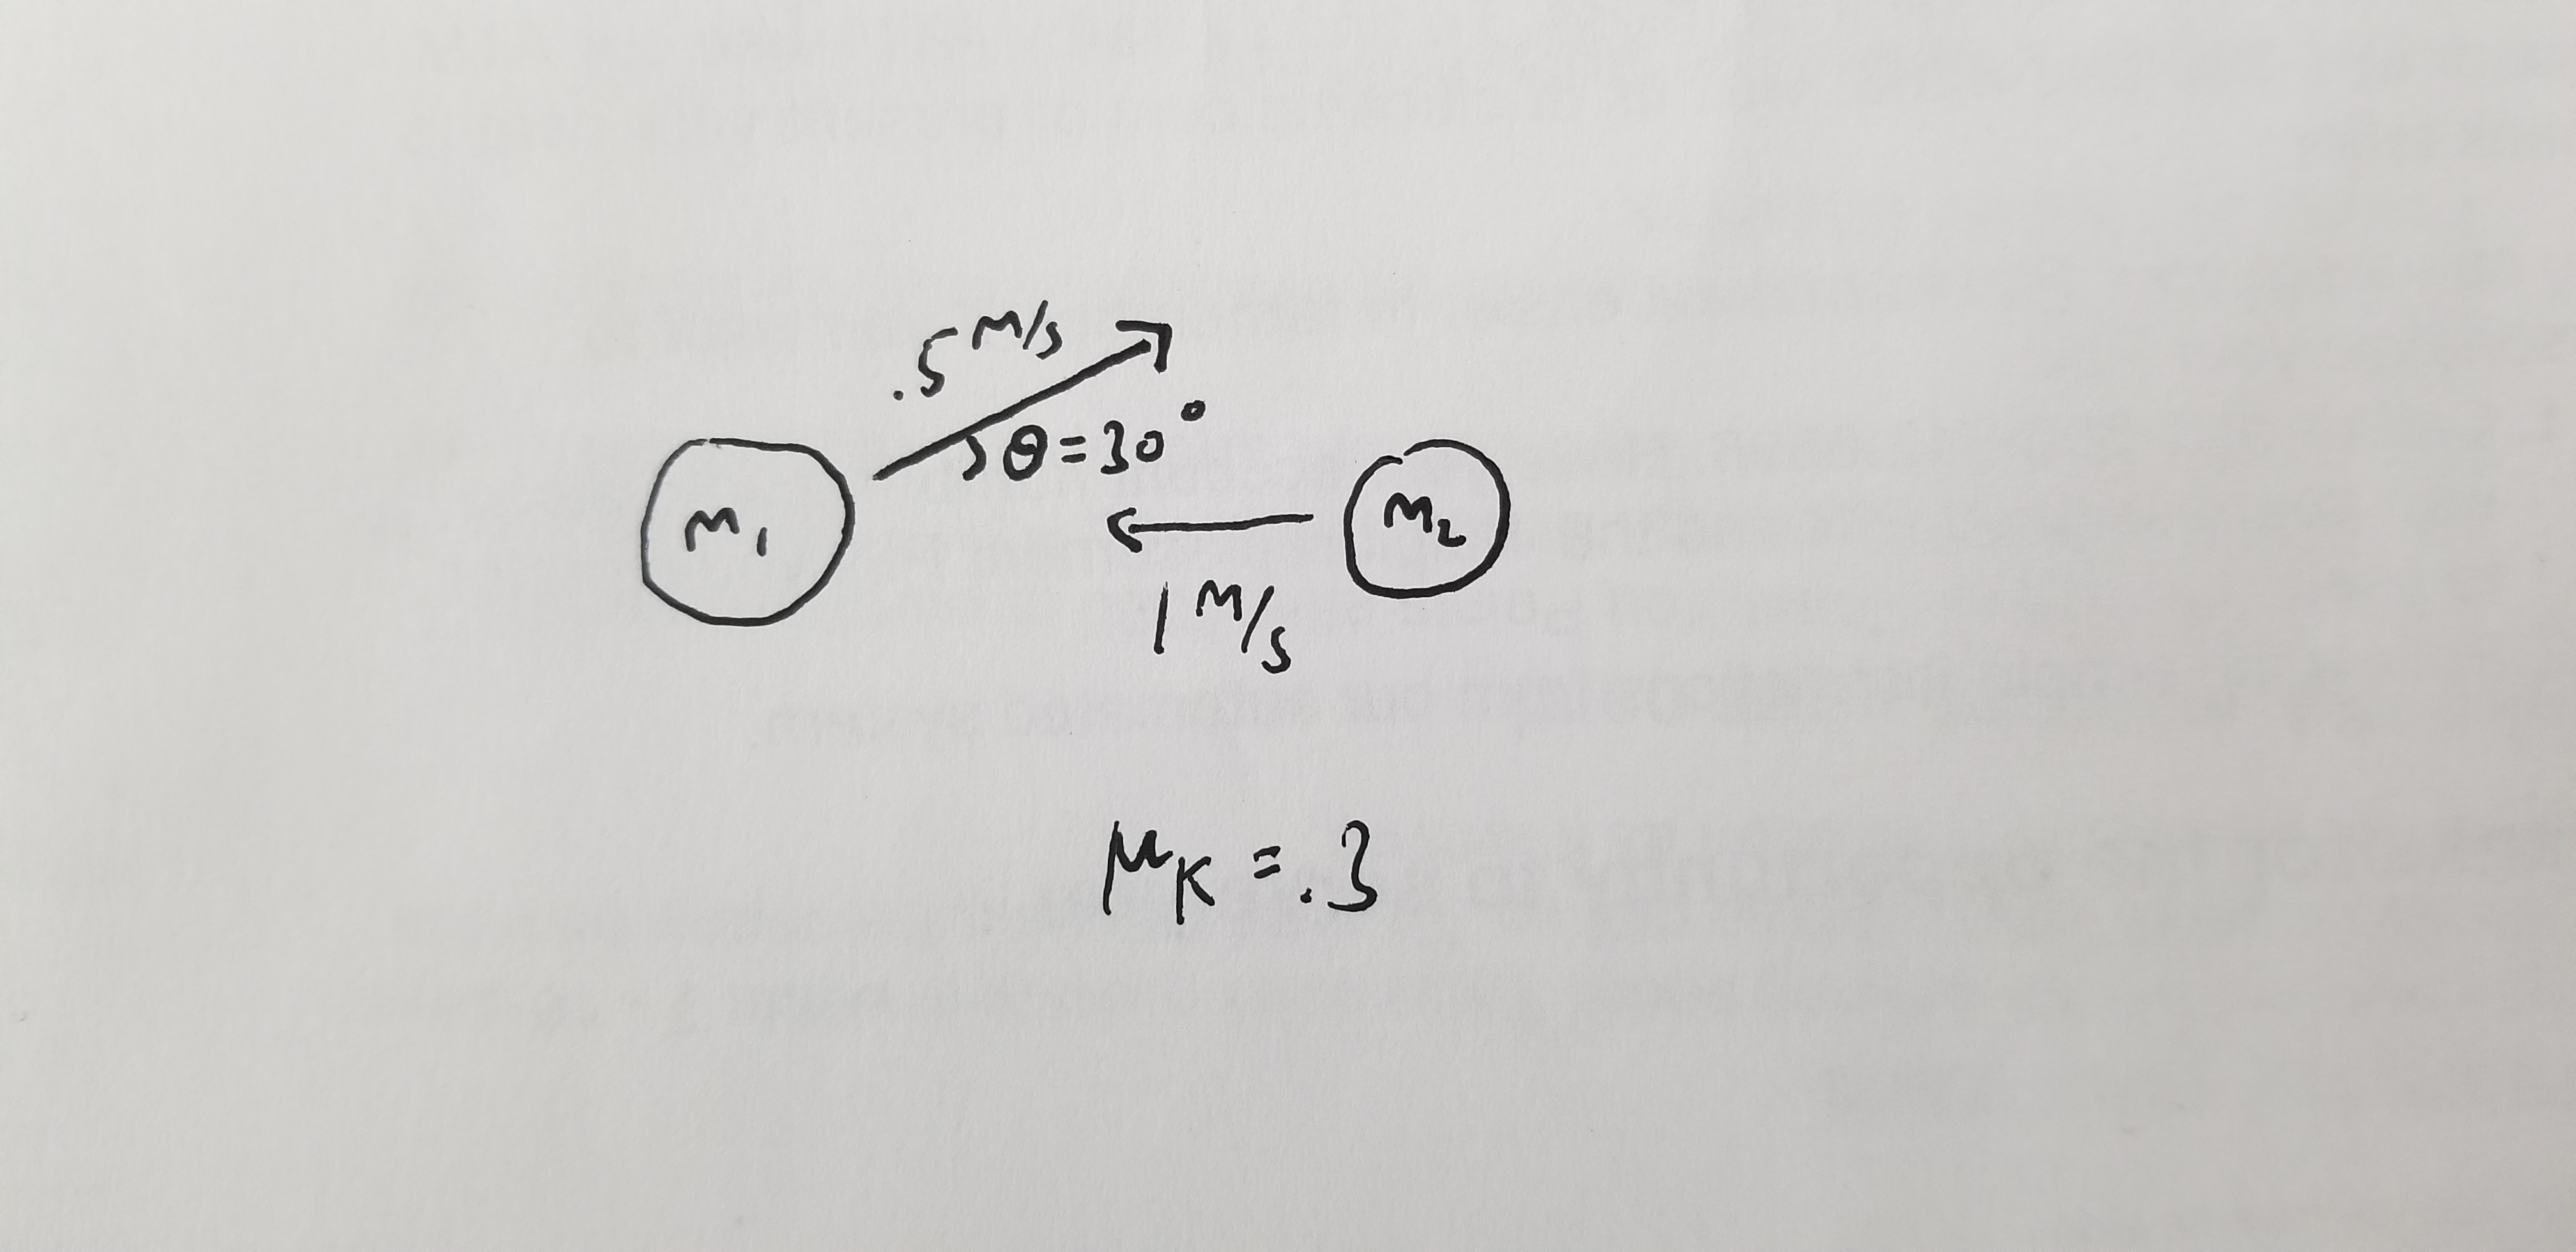 .5 m/s
θ=30°
M1
M2
1 m/s
μK = .3